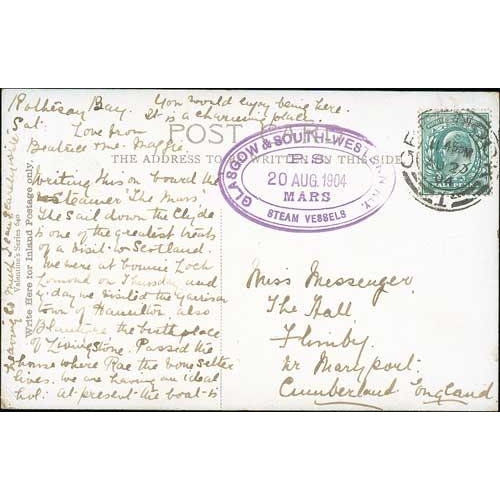 Rothesay Bay. You would enjoy being here.
Sat: It is a charming place.
Love from
Beatrice & Me. Maggie
POST CARD
THE ADDRESS TO BE WRITTEN ON THIS SIDE
GLASGOW & SOUTH-WESTERN RLY.
P.S.
20 AUG. 1904
MARS
STEAM VESSELS
HALF PENNY
Writing this on board the
Steamer "The Mars"
The Sail down the Clyde
is one of the greatest treats
of a visit to Scotland.
We were at bonnie Loch
Lomond on Thursday and
day we visited the garrison
town of Hamilton, also
Blantyre the birth place
of Livingstone. Passed the
house where Rae the bone setter
lives. We are having an ideal
hol: at present the boat is
Write Here for Inland Postage only.
Valentine's Series
Miss Messenger
The Hall
Flimby
Nr Maryport.
Cumberland England